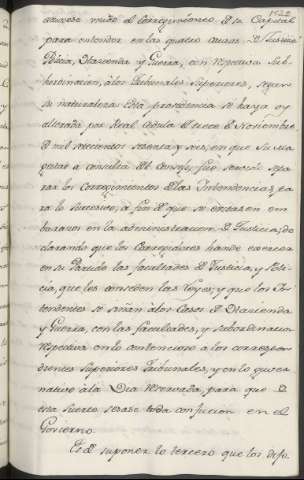 mismo unido al Corregimiento de la Capital
para entender en las quatro causas de Justicia
Policia, Hacienda y Guerra, con respectiva Sub-
hordinacion, à los Tribunales Superiores, segun
su naturaleza. Esta providencia se haya oy
alterada por Real Cedula de trece de Noviembre
de mil setecientos sesenta y seis, en que Su Ma
gestad à consulta del Consejo, fue servido sepa
rar los Corregimientos de las Intendencias pa
ra lo succesivo, à fin de que se ebitasen em
barazos en la administracion de Justicia, de
clarando que los Corregidores han de exercer
en su Partido las facultades de Justicia, y Poli
cia, que les conceden las Leyes; y que los In
tendentes se ciñan à los Casos de Hacienda
y Guerra, con las facultades, y subordinacion
respectiva en lo contencioso à los correspon
dientes Superiores Tribunales, y en lo guver
nativo à la Via reservada, para que de
esta suerte cesase toda confucion en el
Govierno.
Es de suponer lo tercero que los dipu-